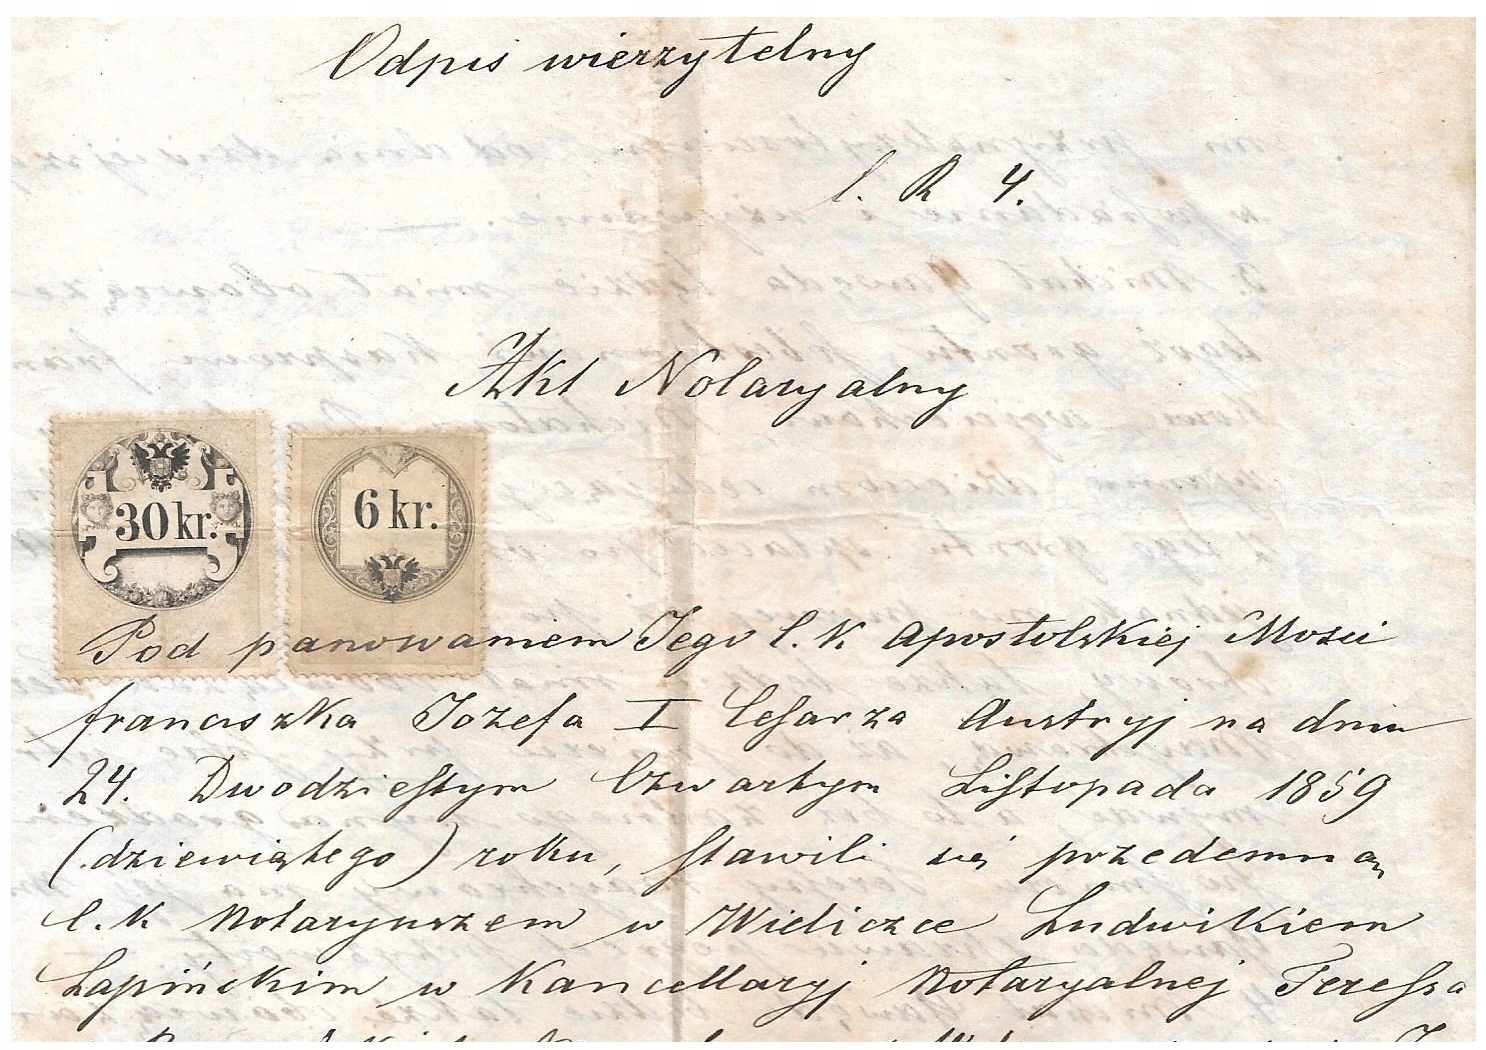 Odpis wierzytelny
l. R 4.
Akt Notaryalny
30 kr.
6 kr.
Pod panowaniem Jego C. K. Apostolskiej Mości
franciszka Jozefa I Cesarza Austryj na dniu
24. Dwodziestym Czwartym Listopada 1859
(dziewiątego) roku, stawili się przedemną
C. K Notaryuszem w Wieliczce Ludwikiem
Łapińskim w Kancellaryj Notaryalnej Teressa